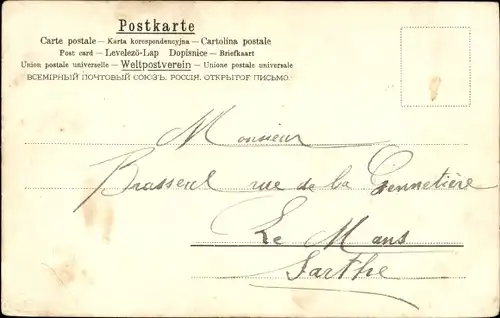 Postkarte
Carte postale – Karta korospondencyjna – Cartolina postale
Post card – Levelező-Lap Dopisnice – Briefkaart
Union postale universelle – Weltpostverein – Unione postale universale
ВСЕМІРНЫЙ ПОЧТОВЫЙ СОЮЗЪ. РОССІЯ. ОТКРЫТОЕ ПИСЬМО.
Monsieur
rue de la
Le Mans
Sarthe